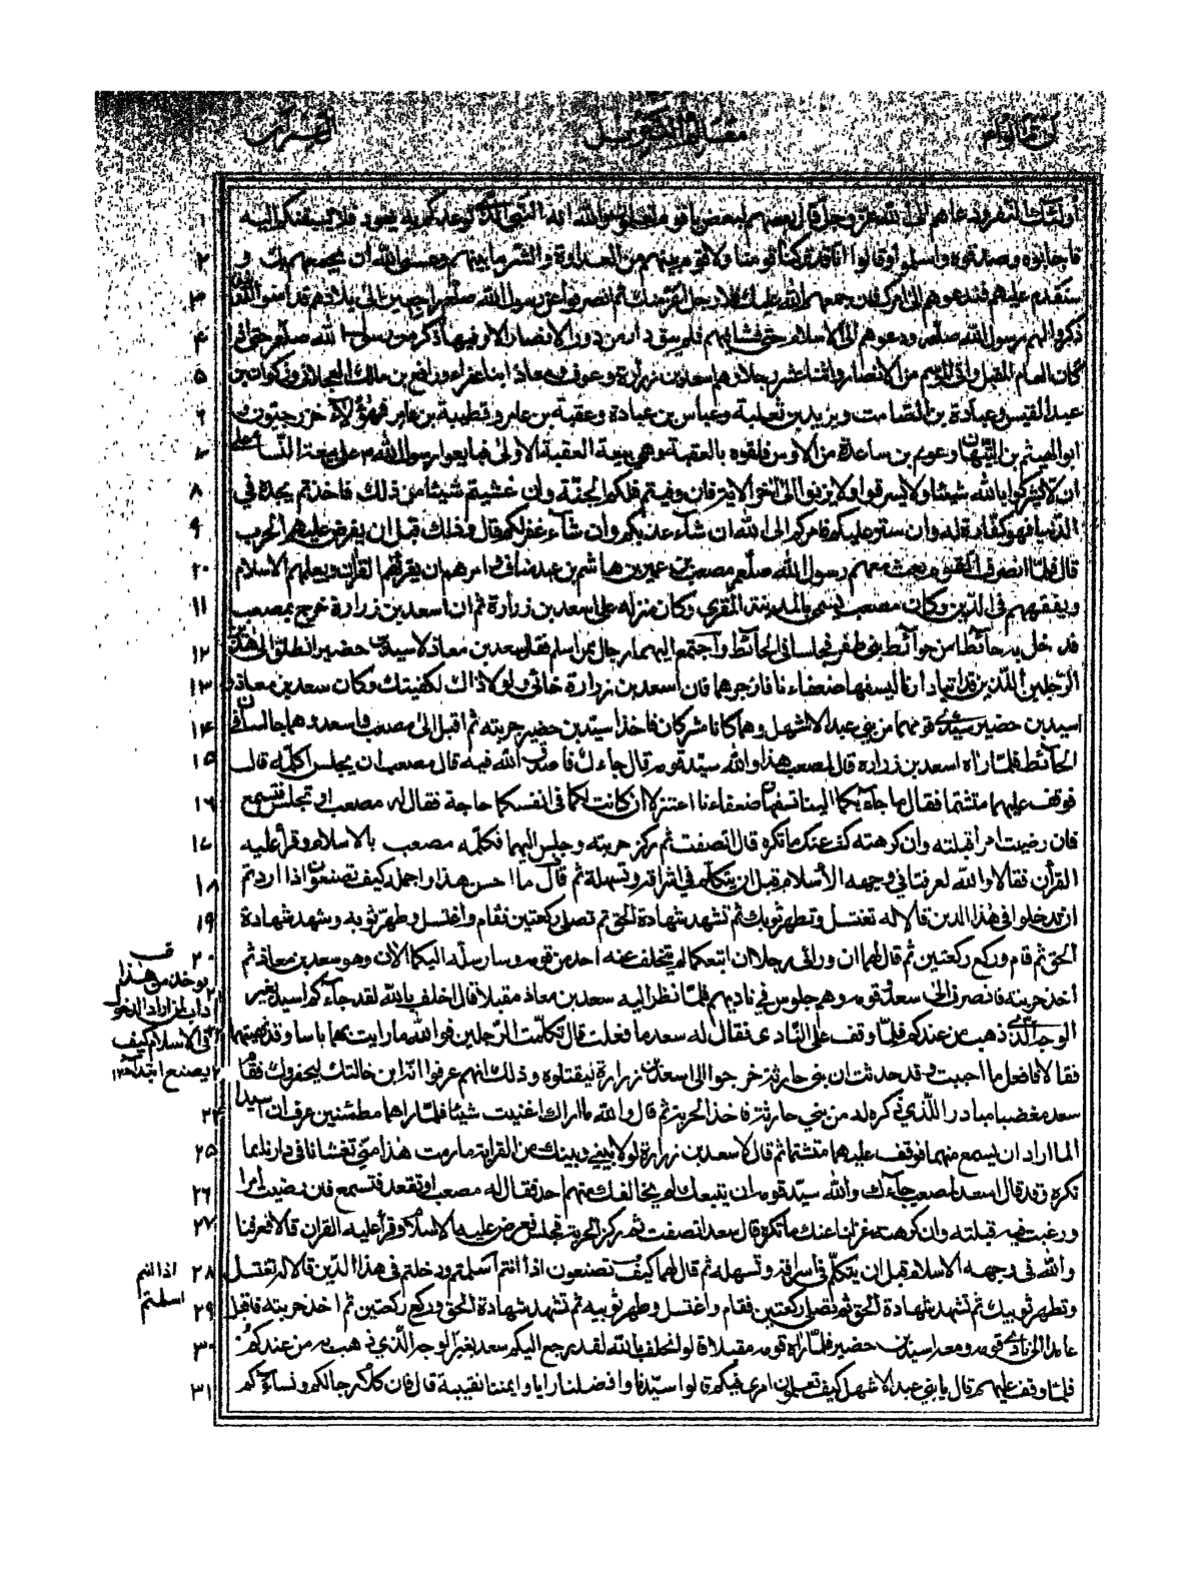 لن تنالوا معالم التنزيل آل عمران
أولئك النفر ودعاهم إلى الله عز وجل قال بعضهم لبعض يا قوم تعلمون والله انه النبي الذي توعدكم به يهود فلا يسبقنكم اليه ١
فاجابوه وصدقوه واسلموا وقالوا انا قد تركنا قومنا ولا قوم بينهم من العداوة والشر ما بينهم وعسى الله ان يجمعهم بك و ٢
سنقدم عليهم فندعوهم الى امرك فان جمعهم الله عليك فلا رجل اعز منك ثم انصرفوا عن رسول الله صلعم راجعين الى بلادهم قد امنوا ٣
ذكروا لهم رسول الله صلعم ودعوهم الى الاسلام حتى فشا فيهم فلم يبق دار من دور الانصار الا وفيها ذكر من رسول الله صلعم حتى اذا ٤
كان العام المقبل وافى الموسم من الانصار اثنا عشر رجلا وهم اسعد بن زرارة وعوف ومعاذ ابنا عفراء ورافع بن مالك العجلاني وذكوان بن ٥
عبد القيس وعبادة بن الصامت ويزيد بن ثعلبة وعباس بن عبادة وعقبة بن عامر وقطبة بن عامر فهؤلاء خزرجيون و ٦
ابو الهيثم بن التيهان وعويم بن ساعدة من الاوس فلقوه بالعقبة وهي بيعة العقبة الاولى فبايعوا رسول الله على بيعة النسا على ٧
ان لا يشركوا بالله شيئا ولا يسرقوا ولا يزنوا الى اخر الاية فان وفيتم فلكم الجنة وان غشيتم شيئا من ذلك فاخذتم بحده في ٨
الدنيا فهو كفارة له وان ستر عليكم فامركم الى الله ان شاء عذبكم وان شاء غفر لكم قال وذلك قبل ان يفرض عليهم الحرب ٩
قال فلما انصرف القوم بعث معهم رسول الله صلعم مصعب بن عمير بن هاشم بن عبد مناف وامرهم ان يقرئهم القران ويعلمهم الاسلام ١٠
ويفقههم في الدين وكان مصعب يسمى بالمدينة المقري وكان منزله على اسعد بن زرارة ثم ان اسعد بن زرارة خرج بمصعب ١١
فدخل به حائطا من حوائط بني ظفر فجلسا في الحائط واجتمع اليهما رجال ممن اسلم فقال سعد بن معاذ لاسيد بن حضير انطلق الى هذين ١٢
الرجلين اللذين قد اتيا دارنا ليسفها ضعفاءنا فازجرهما فان اسعد بن زرارة خالتي ولولا ذاك لكفيتك وكان سعد بن معاذ و ١٣
اسيد بن حضير سيدي قومهما من بني عبد الاشهل وهما كانا مشركان فاخذ اسيد بن حضير حربته ثم اقبل الى مصعب واسعد وهما جالسان في ١٤
الحائط فلما راه اسعد بن زرارة قال لمصعب هذا والله سيد قومه قد جاءك فاصدق الله فيه قال مصعب ان يجلس اكلمه قال ١٥
فوقف عليهما متشتما فقال ما جاء بكما الينا تسفهان ضعفاءنا اعتزلا ان كانت لكما في انفسكما حاجة فقال له مصعب او تجلس فتسمع ١٦
فان رضيت امرا قبلته وان كرهته كف عنك ما تكره قال انصفت ثم ركز حربته وجلس اليهما فكلمه مصعب بالاسلام وقرأ عليه ١٧
القرآن فقالا والله لعرفنا في وجهه الأسلام قبل ان يتكلم في اشراقه وتسهله ثم قال ما احسن هذا واجمله كيف تصنعون اذا اردتم ١٨
ان تدخلوا في هذا الدين قالا له تغتسل وتطهر ثوبك ثم تشهد شهادة الحق ثم تصلي ركعتين فقام واغتسل وطهر ثوبه وشهد شهادة ١٩
الحق ثم قام وركع ركعتين ثم قال لهما ان ورائى رجلا ان اتبعكما لم يتخلف عنه احد من قومه وسارسله اليكما الان وهو سعد بن معاذ ثم ٢٠
أخذ حربته فانصرف الى سعد وقومه وهم جلوس في ناديهم فلما نظر اليه سعد بن معاذ مقبلا قال احلف بالله لقد جاءكم اسيد بغير ٢١
الوجه الذي ذهب من عندكم فلما وقف على النادي فقال له سعد ما فعلت قال كلمت الرجلين فوالله ما رايت بهما باسا وقد نهيتهما ٢٢
فقالا فافعل ما احببت وقد حدثت ان بني حارثة خرجوا الى اسعد بن زرارة ليقتلوه وذلك انهم عرفوا انه ابن خالتك ليحقروك فقام ٢٣
سعد مغضبا مبادرا للذي ذكره له من بني حارثة فاخذ الحربة ثم قال والله ما اراك اغنيت شيئا فلما راهما مطمئنين عرف ان اسيدا ٢٤
انما اراد ان يسمع منهما فوقف عليهما متشتما ثم قال لاسعد بن زرارة لولا بيني وبينك من القرابة ما رمت هذا مني تغشانا في دارنا بما ٢٥
نكره وقد قال اسعد لمصعب جاءك والله سيد قومه ان يتبعك لم يخالفك منهم احد فقال له مصعب او تقعد فتسمع فان رضيت امرا ٢٦
ورغبت فيه قبلته وان كرهته عزلنا عنك ما تكره قال سعد انصفت ثم ركز الحربة فجلس فعرض عليه الاسلام وقرأ عليه القران قالا فعرفنا ٢٧
والله في وجهه الاسلام قبل ان يتكلم في اشراقه وتسهله ثم قال لهما كيف تصنعون اذا انتم اسلمتم ودخلتم في هذا الدين قالا له تغتسل ٢٨
وتطهر ثوبيك ثم تشهد شهادة الحق ثم تصلي ركعتين فقام واغتسل وطهر ثوبيه ثم تشهد شهادة الحق وركع ركعتين ثم اخذ حربته فاقبل ٢٩
عامدا الى نادي قومه ومعه اسيد بن حضير فلما راه قومه مقبلا قالوا نحلف بالله لقد رجع اليكم سعد بغير الوجه الذي ذهب به من عندكم ٣٠
فلما وقف عليهم قال يا بني عبد الاشهل كيف تعلمون امري فيكم قالوا سيدنا وافضلنا رايا وايمننا نقيبة قال فان كلام رجالكم ونساءكم ٣١
قب
يوخذ من هذا
ان من اراد الدخول
في الاسلام كيف
يصنع ابتداء ١٢
اذا انتم
اسلمتم